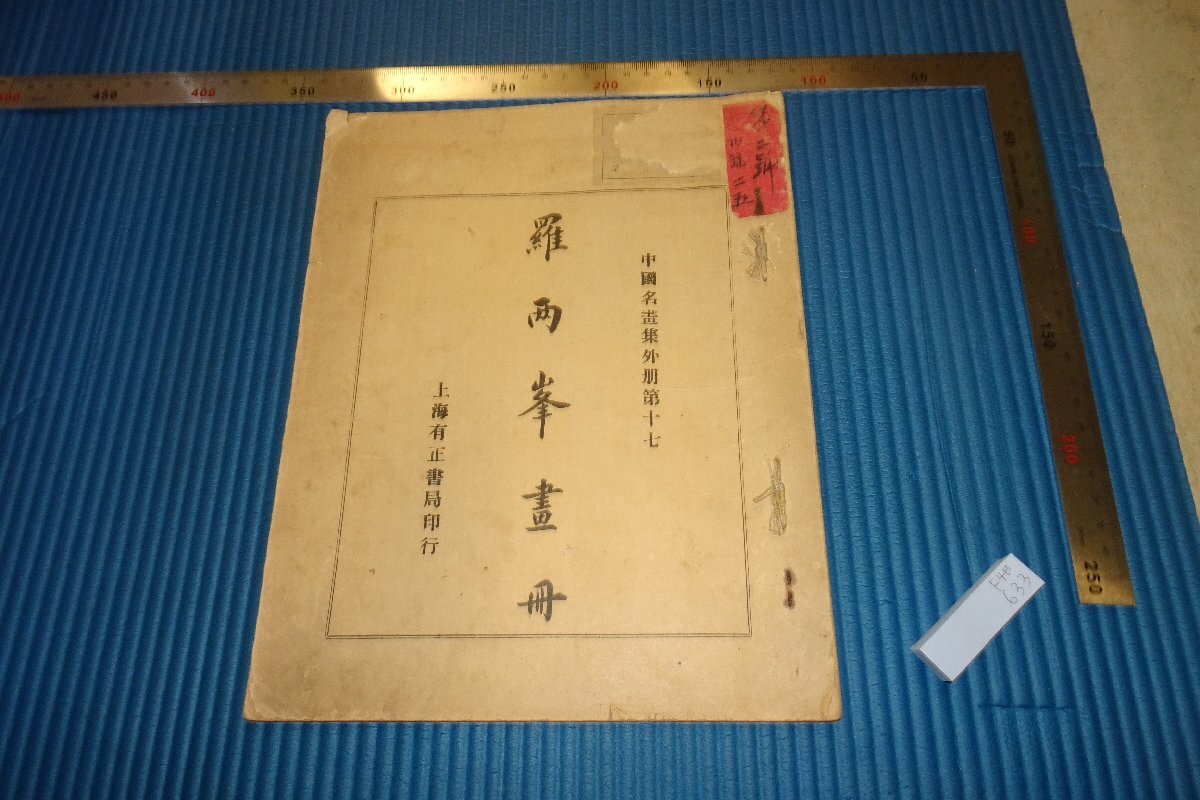 中國名畫集外册第十七
羅兩峯畫冊
上海有正書局印行
二號
二五
F4B
633
500 450 400 350 300 250 200 150 100 50
50
100
150
200
250